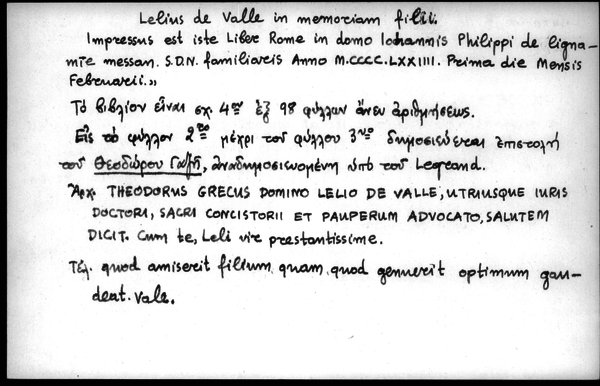 Lelius de Valle in memoriam filii.
Impressus est iste Liber Rome in domo Iohannis Philippi de ligna-
mie messan. S.D.N. familiaris Anno M.CCCC.LXXIIII. Prima die Mensis
Februarii.»
Τὸ βιβλίον εἶναι σχ. 4ον ἐξ 98 φύλλων ἄνευ ἀριθμήσεως.
Εἰς τὸ φύλλον 2ον μέχρι τοῦ φύλλου 3νο δημοσιεύεται ἐπιστολή
τοῦ Θεοδώρου Γαζῆ, ἀναδημοσιευομένη ὑπὸ τοῦ Legrand.
Ἀρχ. THEODORUS GRECUS DOMINO LELIO DE VALLE, UTRIUSQUE IURIS
DOCTORI, SACRI CONCISTORII ET PAUPERUM ADVOCATO, SALUTEM
DICIT. Cum te, Leli vir prestantissime.
Τέλ. quod amiserit filium quam quod genuerit optimum gau-
deat. Vale.